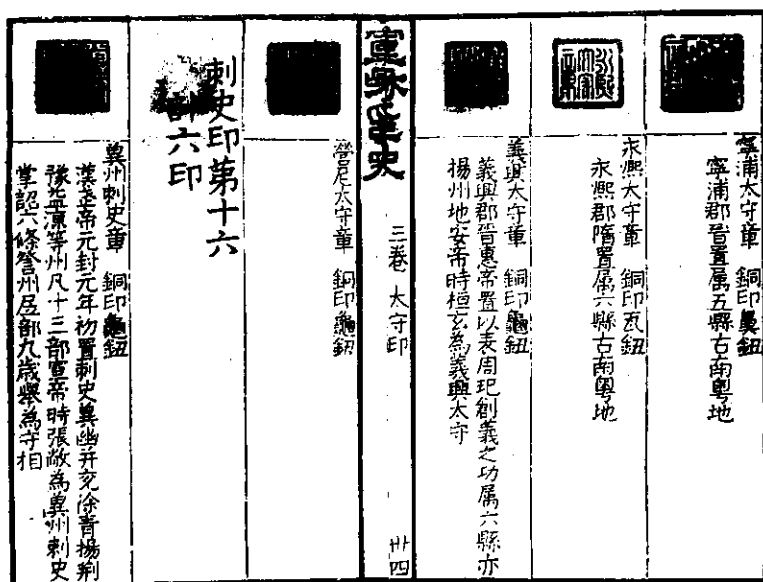 寧浦太守章　銅印鼻鈕
寧浦郡晉置属五縣古南粤地
永熈太守章　銅印瓦鈕
永熈郡隋置属六縣古南粤地
義興太守章　銅印龜鈕
義興郡晉惠帝置以表周玘創義之功属六縣亦
揚州地安帝時桓玄為義興太守
三卷　太守印
卅四
太守章　銅印龜鈕
刺史印第十六
六印
兾州刺史章　銅印龜鈕
漢武帝元封元年初置刺史兾幽并兖徐青揚荆
豫益凉等州凡十三部宣帝時張敞為兾州刺史
掌詔六條詧州居部九歳舉為守相